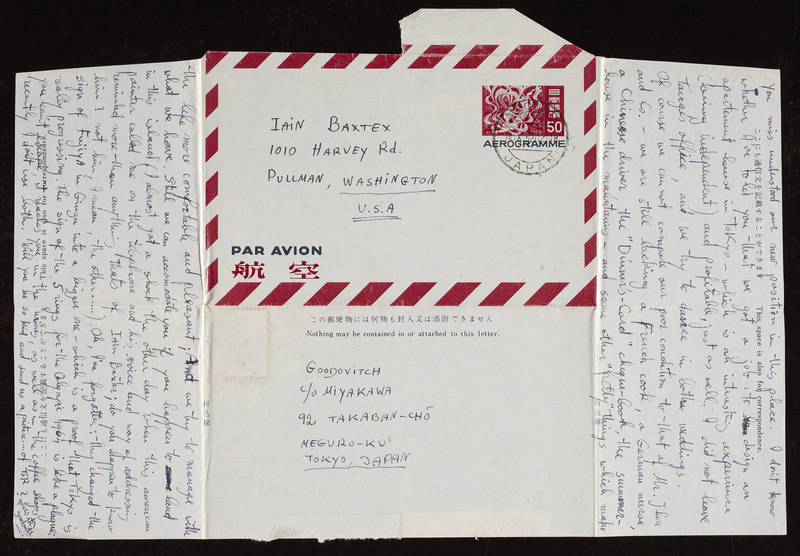 IAIN BAXTEX
1010 HARVEY Rd.
PULLMAN, WASHINGTON
U.S.A
日本郵便
50
AEROGRAMME
JAPAN
PAR AVION
航空
この郵便物には何物も封入又は添附できません
Nothing may be contained in or attached to this letter.
GOODOVITCH
c/o MIYAKAWA
92 TAKABAN-CHŌ
MEGURO-KU
TOKYO, JAPAN
You miss understood our new position in this place. I don't know
ここにも通信文を記載することができます This space is also for correspondence.
whether I've told you that we got a job: to design an
apartment-house in Tokyo - which is an interesting experience
(being independent) and profitable just as well. I did not leave
Tange's office, and we try to dance in both weddings.
Of course we can not compare our poor condition to that of Mr. Jhon
and Co. - we are still lacking a French cook, a German nurse,
a Chinese driver, the "Dinners-Card" cheque-book, the summer-
house in the mountains - and some other "petty" things which make
the life more comfortable and pleasant; And we try to manage with
what we have. Still we can accomodate you if you happen to land
in this island. I almost got a shock the other day when this american
painter called me on the telephone and his voice and way of addressing
reminded more than anything thats of Iain Baxter; do you happen to know
him? not him, I mean, the other.....) Oh I've forgotten:- they changed the
sign of Fujiya in Ginza into a bigger one - which is a proof that Tokyo is
really progressing. The sign of the 5 rings for the Olympic 1964 is also a plague;
you can't escape it reaches you in the as well as in the coffee shops.
This space is also for correspondence
recently I don't use both. Will you be so kind and send us a picture of TOR?